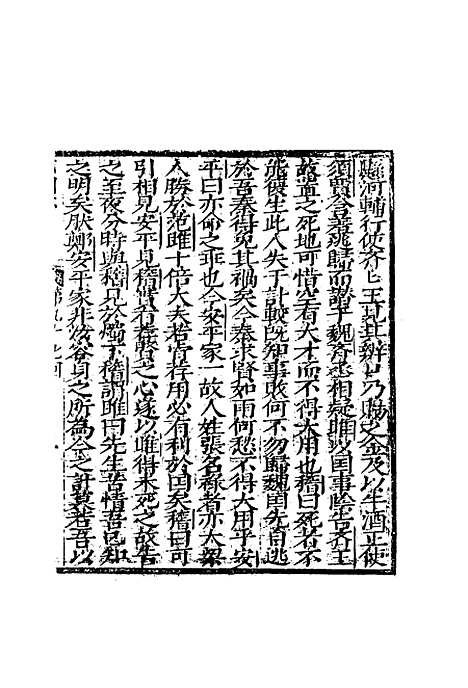 懸河輔行使齐七王見其辨口乃賜之金及以牛酒正使
須賈含羞飛歸而譖平魏齐丞相疑睢以囯事陰告齐王
故置之死地可惜空有大才而不得大用也稽曰死者不
能復生此人失于計較既知事敗何不勿歸魏囯先自逃
於吾秦得免其禍矣今秦求賢如雨何愁不得大用乎安
平曰亦命之乖也今安平家一故人姓張名禄者亦大梁
人勝於范睢十倍大夫若肯荐用必有利於囯矣稽曰可
引相見安平見稽實有著賢之心遂以睢得未死之故告
之至夜分時與稽見於燭下稽謂睢曰先生苦情吾已知
之明矣肰鄭安平家非侬容身之所為今之計莫若吾以